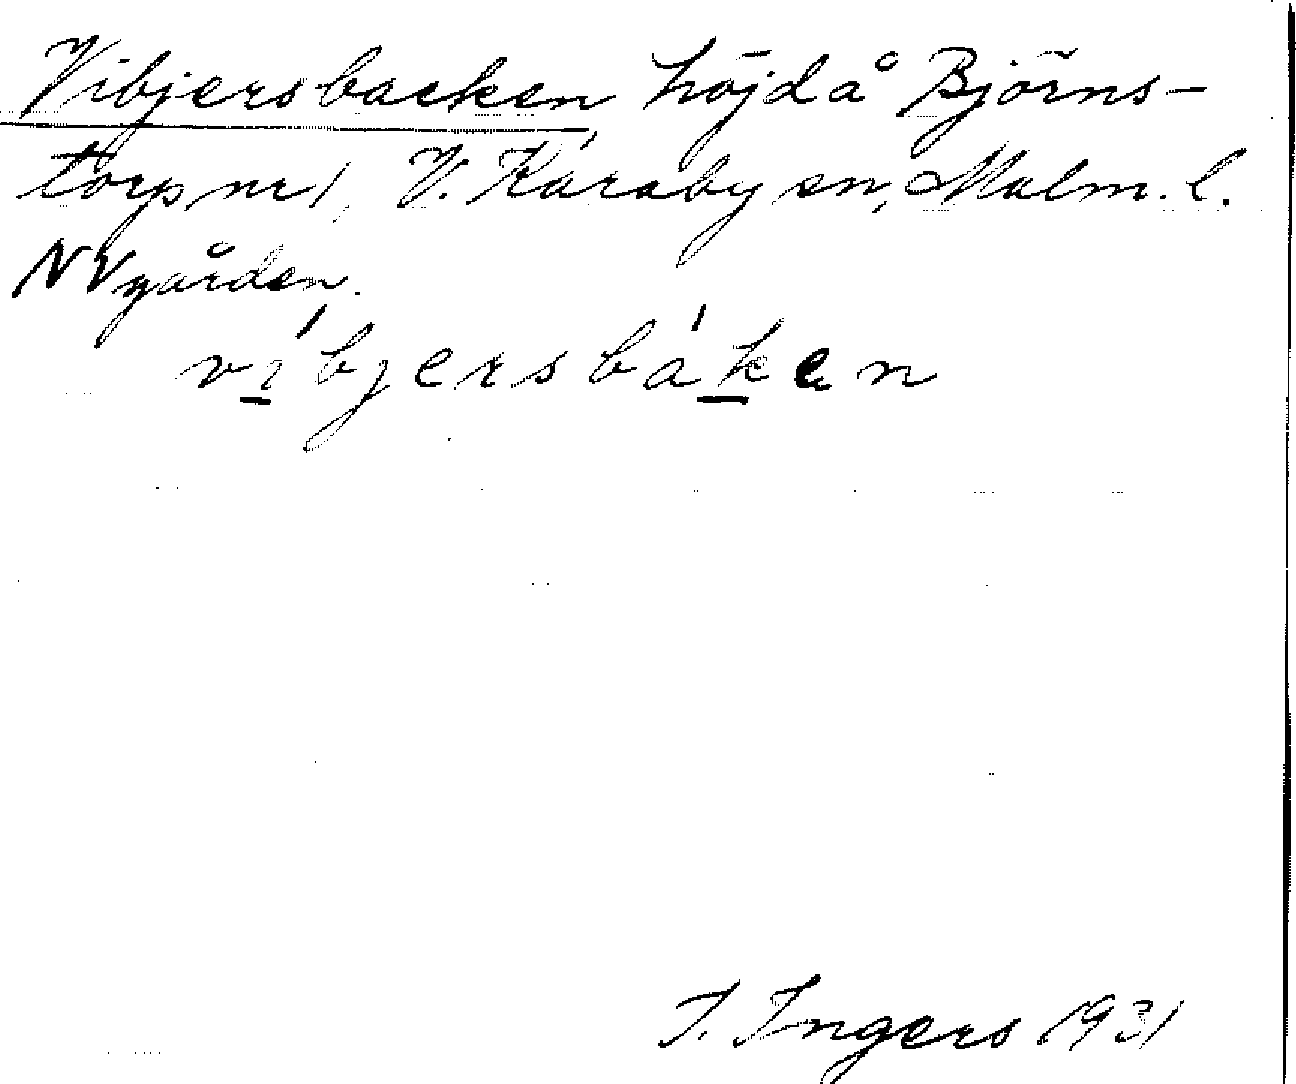 Vibjersbacken, höjd å Björns-
torp nr 1, V. Karaby sn, Malm. l.
NV gården.
ví̲bjersbá̲ken
I. Ingers 1931